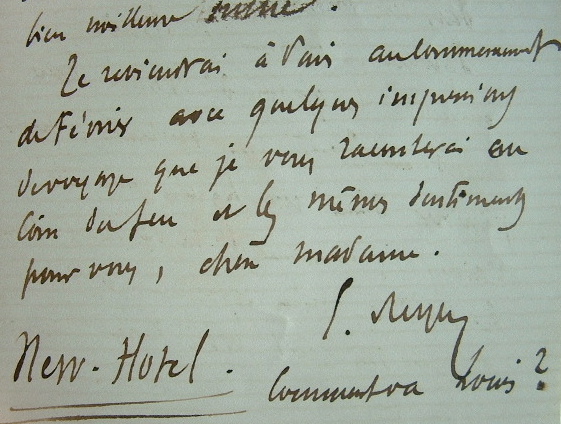 bien meilleure mine.
Je reviendrai à Paris au commencement
de Février avec quelques impressions
de voyage que je vous raconterai au
Coin du feu et les mêmes sentiments
pour vous, chère madame.
E. Reyer
New-Hotel.
Comment va Louis ?